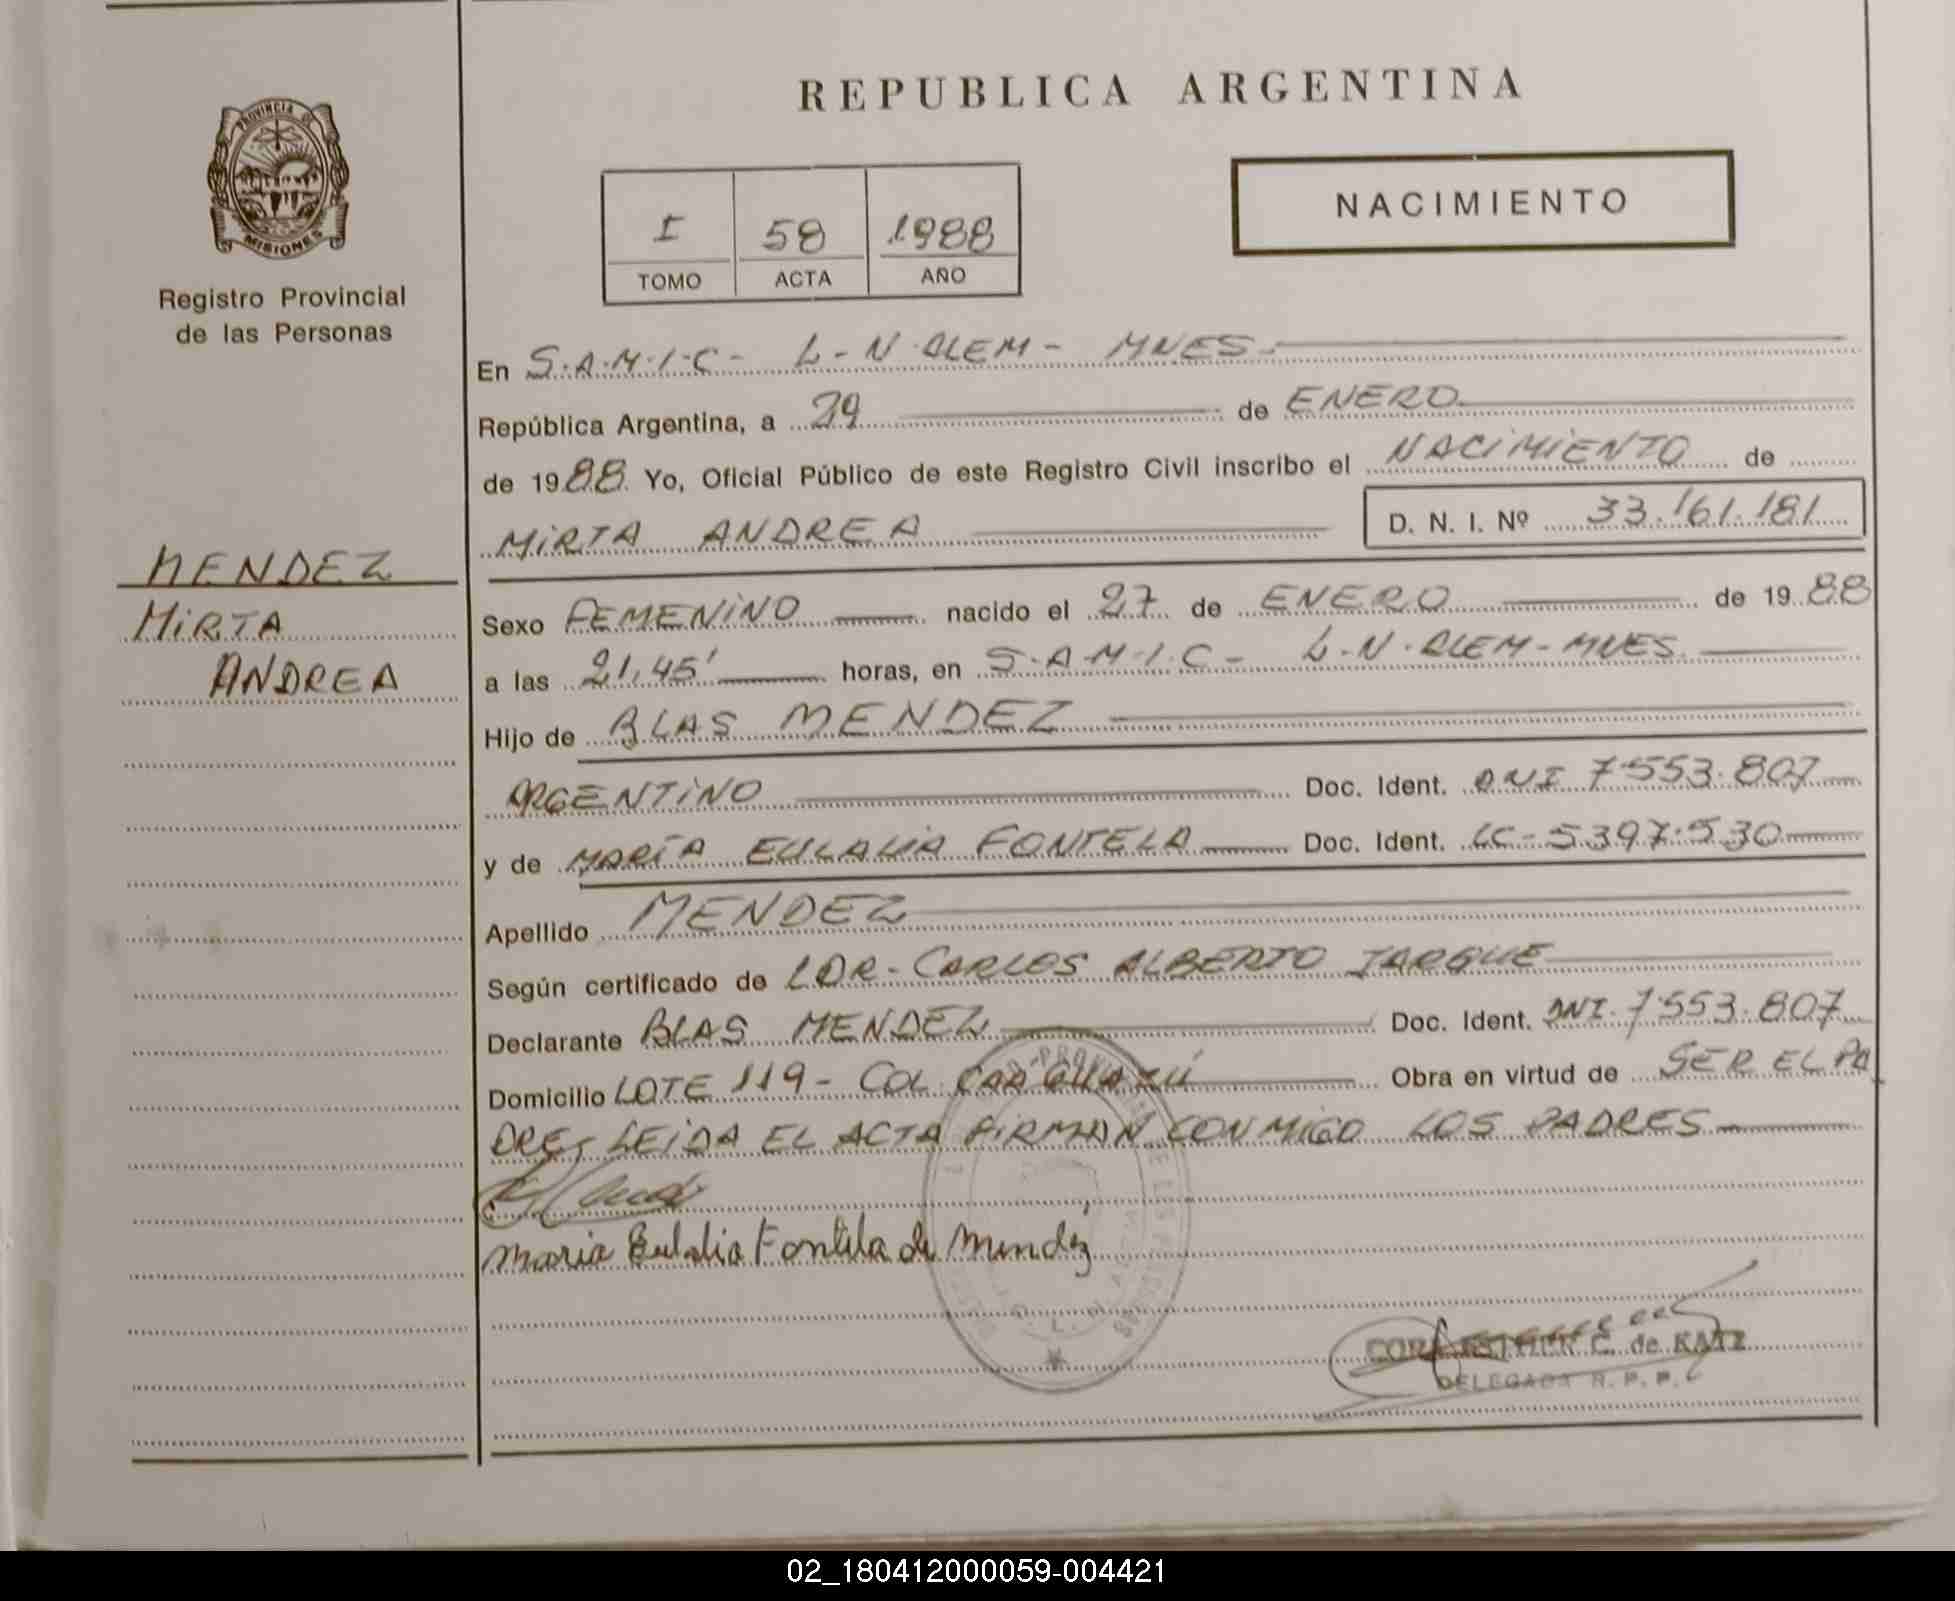 REPUBLICA ARGENTINA
PROVINCIA DE
MISIONES
Registro Provincial
de las Personas
I 58 1988
TOMO ACTA AÑO
NACIMIENTO
En S.A.M.I.C- L-N.ALEM- MNES.-
República Argentina, a 29 de ENERO
de 1988. Yo, Oficial Público de este Registro Civil inscribo el NACIMIENTO de
MIRTA ANDREA D. N. I. Nº 33.161.181
MENDEZ
MIRTA
ANDREA
Sexo FEMENINO nacido el 27 de ENERO de 1988
a las 21,45' horas, en S.A.M.I.C- L.N.ALEM-MNES.
Hijo de BLAS MENDEZ
ARGENTINO Doc. Ident. DNI 7.553.807
y de MARÍA EULALIA FONTELA Doc. Ident. LC-5397.530
Apellido MENDEZ
Según certificado de LDR-CARLOS ALBERTO JARQUE
Declarante BLAS MENDEZ Doc. Ident. DNI. 7.553.807
Domicilio LOTE 119- COL. CAAGUAZÚ Obra en virtud de SER EL PA
DRE, LEIDA EL ACTA FIRMAN CONMIGO LOS PADRES
Maria Eulalia Fontela de Mendez
C. de KATZ
DELEGADA R. P. P.
02_180412000059-004421